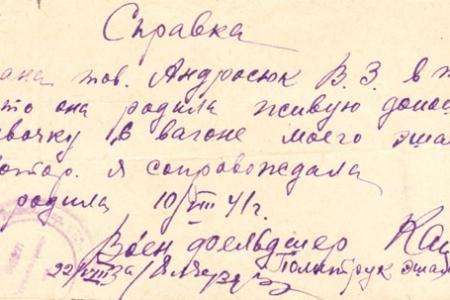 Справка
ана тов. Андросюк В. З. в т
что она родила живую доно
вочку в вагоне моего эша
котор. я сопровождала
родила 10/VIII 41 г.
Воен фельдшер Ка
22/VIII Политрук эшал